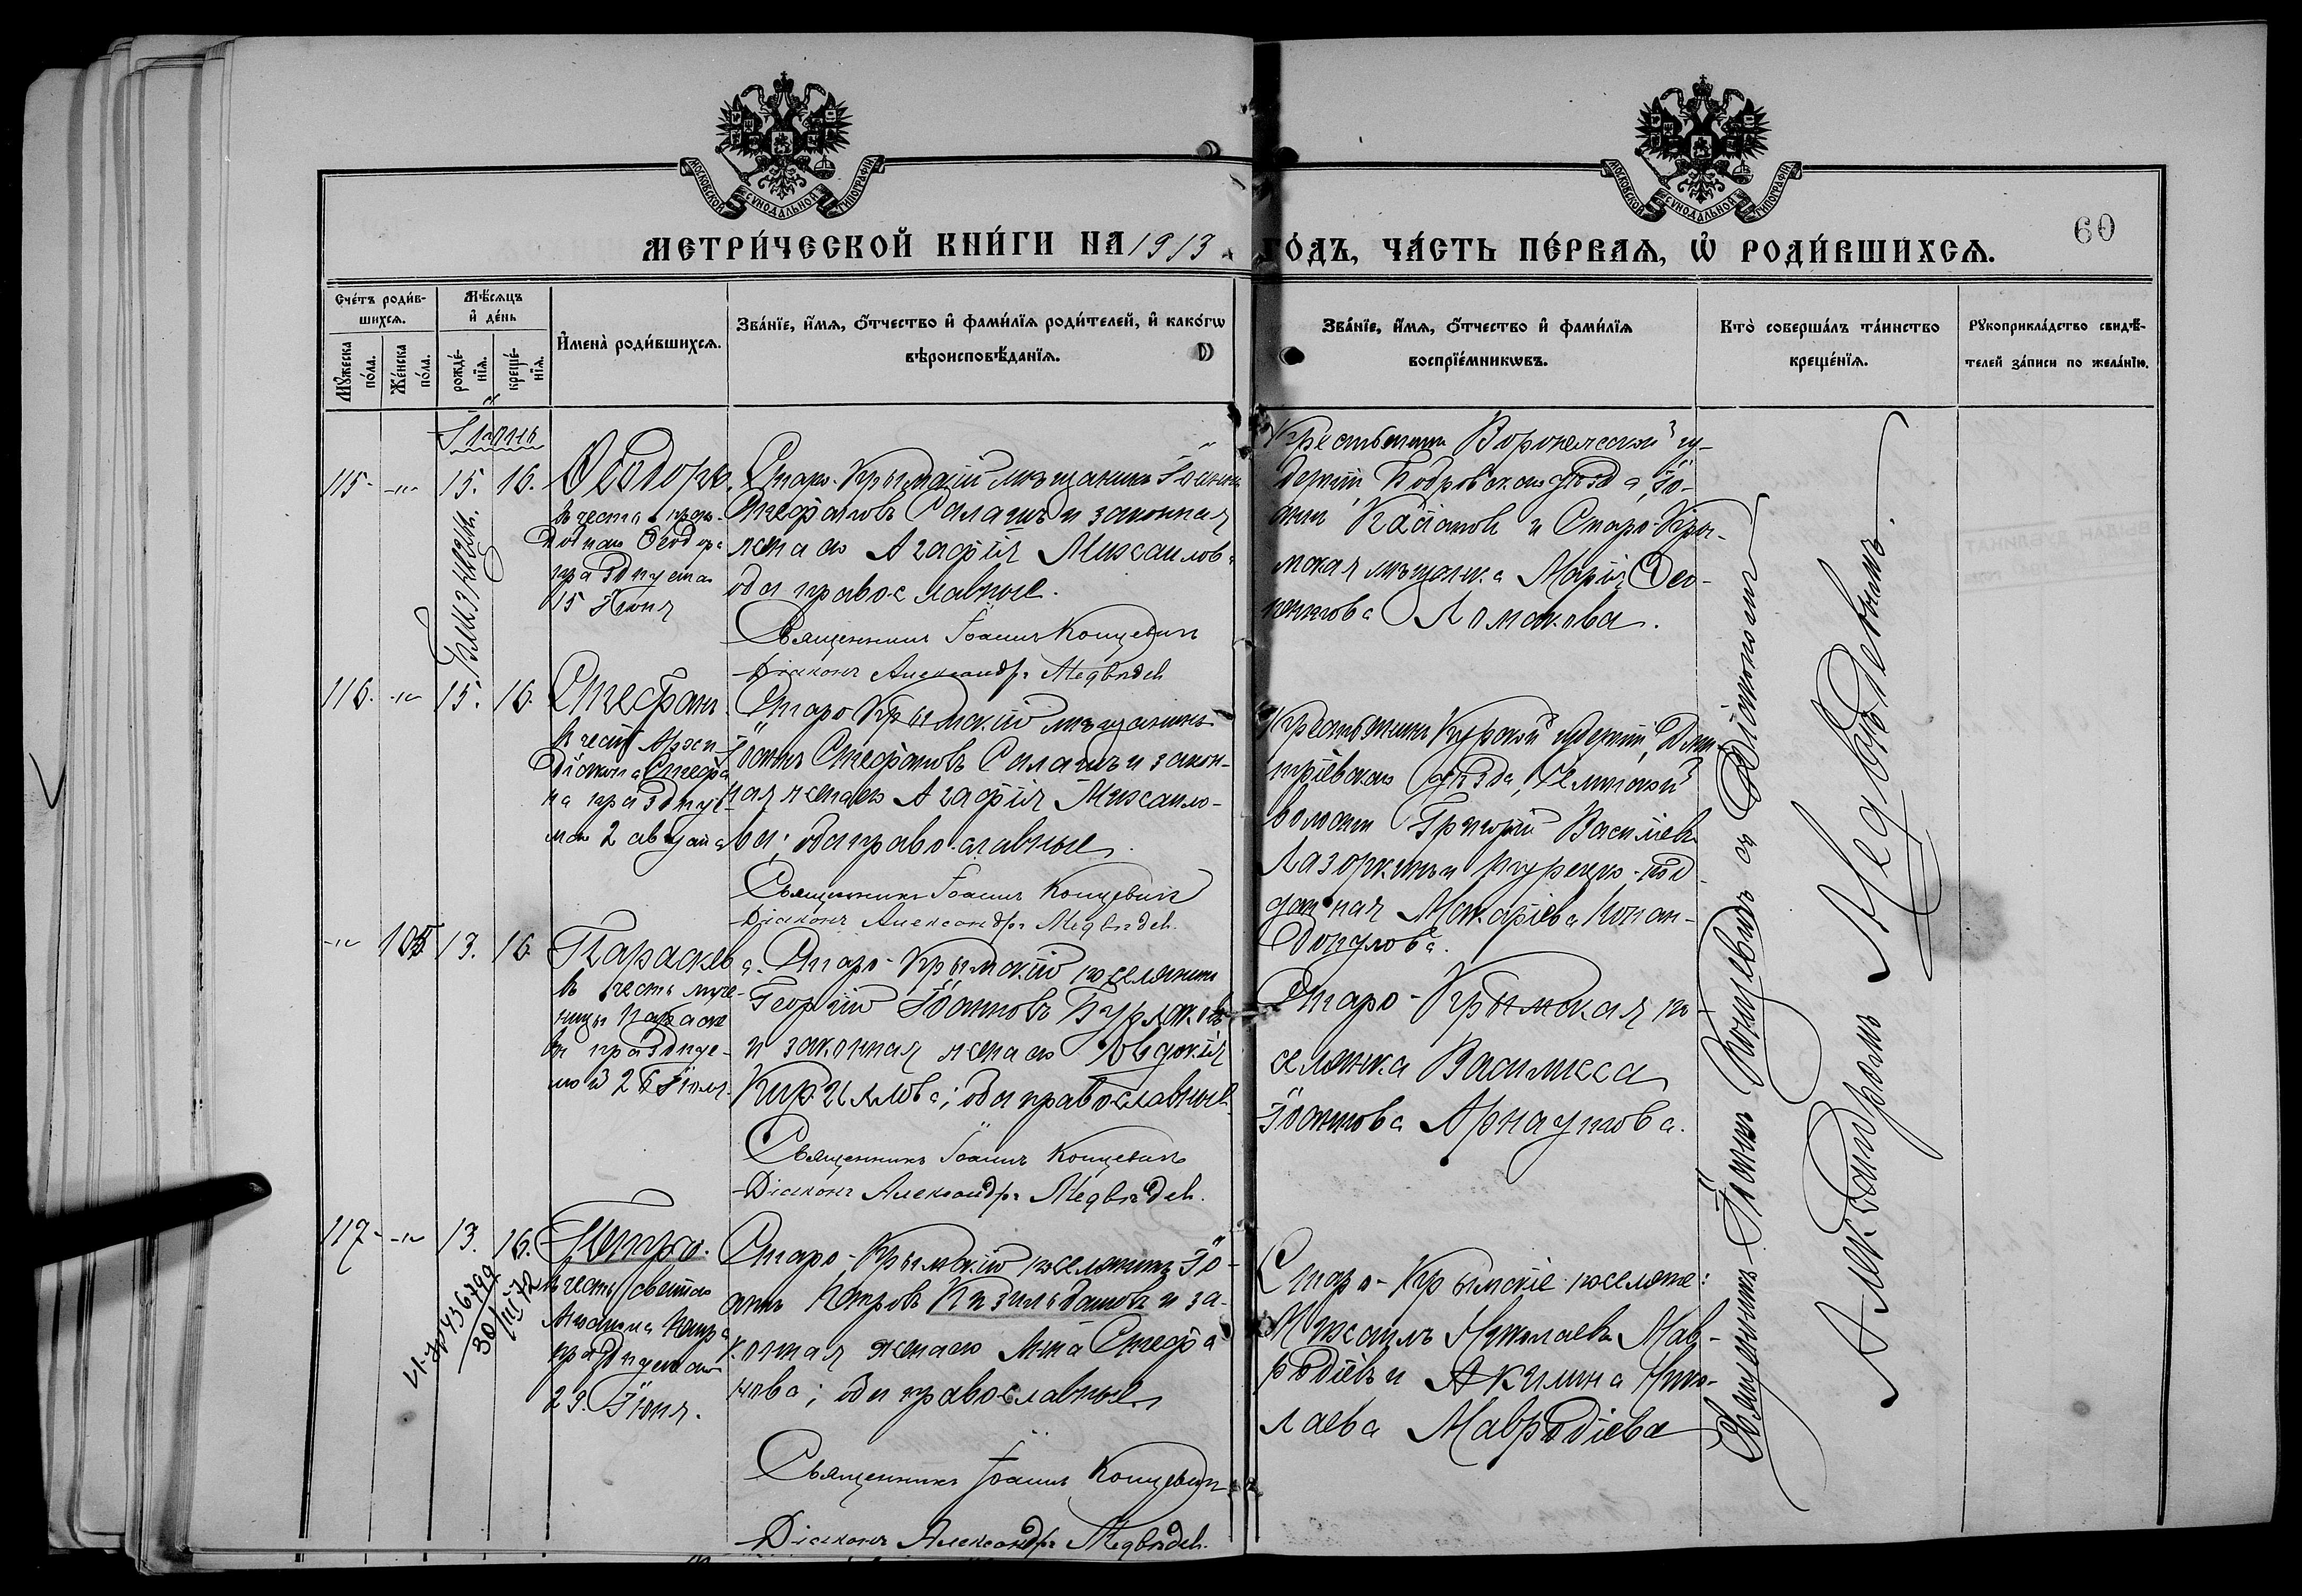 МОСКОВСКОЙ СѴНОДАЛЬНОЙ ТИПОГРАФІИ
МОСКОВСКОЙ СѴНОДАЛЬНОЙ ТИПОГРАФІИ
МЕТРИ́ЧЕСКОЙ КНИ́ГИ НА 1913 ГО́ДЪ, ЧА́СТЬ ПЕ́РВАѦ, Ѡ҆ РОДИ́ВШИХСѦ.
60
Сче́тъ роди́в-
шихсѧ.
Мꙋ́жеска
по́ла.
Же́нска
по́ла.
Мѣ́сѧцъ
и҆ де́нь
рожде́-
нїѧ.
креще́-
нїѧ.
И҆мена̀ роди́вшихсѧ.
Зва́нїе, и҆́мѧ, ѻ҆́тчество и҆ фами́лїѧ роди́телей, и҆ како́гѡ
вѣроисповѣ́данїѧ.
Зва́нїе, и҆́мѧ, ѻ҆́тчество и҆ фами́лїѧ
воспрїе́мникѡвъ.
Кто̀ соверша́лъ та́инство
креще́нїѧ.
Рꙋкоприкла́дство свидѣ́-
телей за́писи по жела́нїю.
Іюнь
115 - " - 15. 16.
Ѳеодоръ.
въ честь
Ѳеодора
празднуемаго
15 Іюня
Близнецы.
Старо-Крымскій мѣщанинъ Іоаннъ
Стефановъ Салашъ и законная
жена его Агафія Михаилова
оба православные.
Священникъ Іоаннъ Концевичъ
Діаконъ Александръ Медвѣдевъ
Крестьянинъ Воронежской гу-
берніи, Бобровскаго уѣзда, Іо-
аннъ и Старо-Кры-
мская мѣщанка Марія
Ломакова.
116. - " - 15. 16.
Стефанъ
въ честь Архи-
діакона Стефа
на празднуе-
маго 2 августа
Старо Крымскій мѣщанинъ
Іоаннъ Стефановъ Салашъ и закон-
ная жена его Агафія Михаило-
ва; оба православные.
Священникъ Іоаннъ Концевичъ
Діаконъ Александръ Медвѣдевъ.
Крестьянинъ Курской губерніи, Дми-
тріевскаго уѣзда,
волости Григорій Васильевъ
и турецко-под
данная Макаріева
- " - 105 13. 16.
Параскева.
въ честь муче-
ницы Параске
вы празднуе-
мой 26 Іюля.
Старо-Крымскій поселянинъ
Георгій Іоанновъ Бурлаковъ
и законная жена его Евдокія
Кириллова; оба православные.
Священникъ Іоаннъ Концевичъ
Діаконъ Александръ Медвѣдевъ.
Старо-Крымская по-
селянка Василисса
Іоаннова Арнаутова.
117 - " - 13. 16.
Петръ.
въ честь святаго
Апостола Петра
празднуемаго
29. Іюня.
30/III 72
Старо-Крымскій поселянинъ Іо-
аннъ Петровъ Кизильбашовъ и за-
конная жена его Анна Стефа
нова; оба православные
Священникъ Іоаннъ Концевичъ
Діаконъ Александръ Медвѣдевъ.
Старо-Крымскіе поселяне:
Михаилъ Николаевъ Мав-
родіевъ и Акилина Нико-
лаева Мавродіева
Священникъ Іоаннъ Концевичъ съ Діакономъ
Александромъ Медвѣдевымъ.
ВЫДАН ДУБЛИКАТ